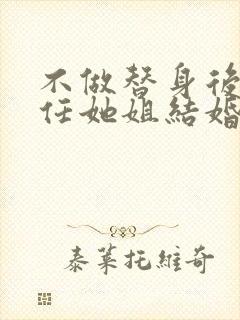 不做替身後
任她姐結婚
泰萊托維奇